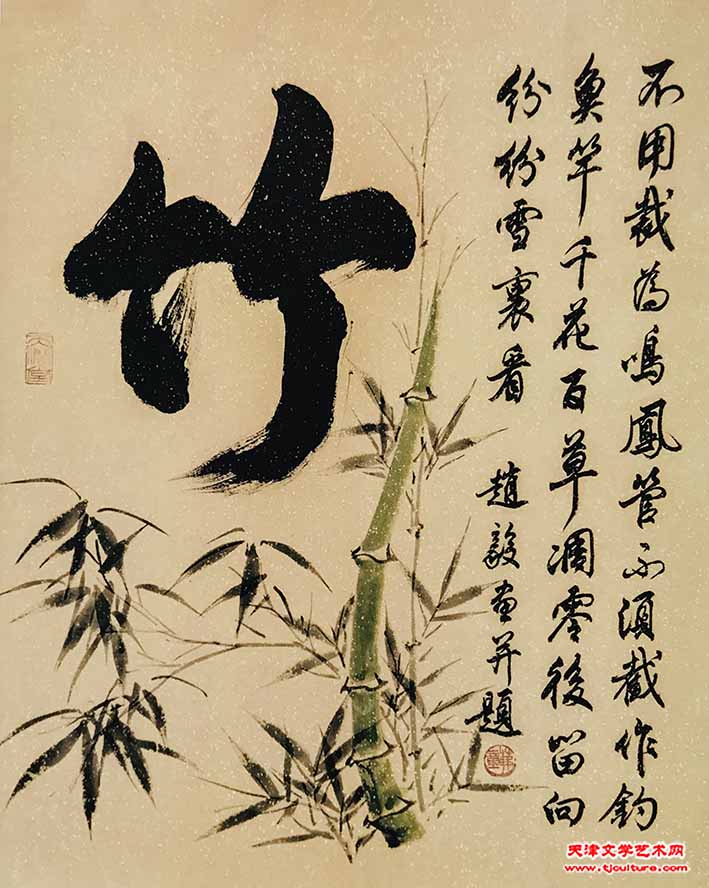 竹
不用裁为鸣凤管不须截作钓
鱼竿千花百草凋零後留向
纷纷雪裏看
趙毅画并題
天津文学艺术网
www.tjculture.com